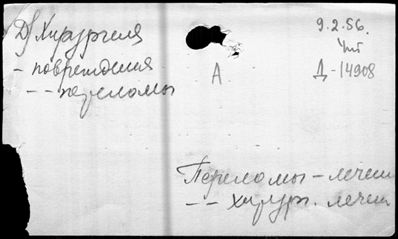 Д) Хирургия
- повреждения
- - переломы
А
9.2.56.
Чит
Д-14908
Переломы - лечен
- - хирург. лечен